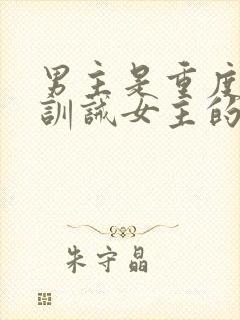 男主是重度
训诫女主的
朱守晶